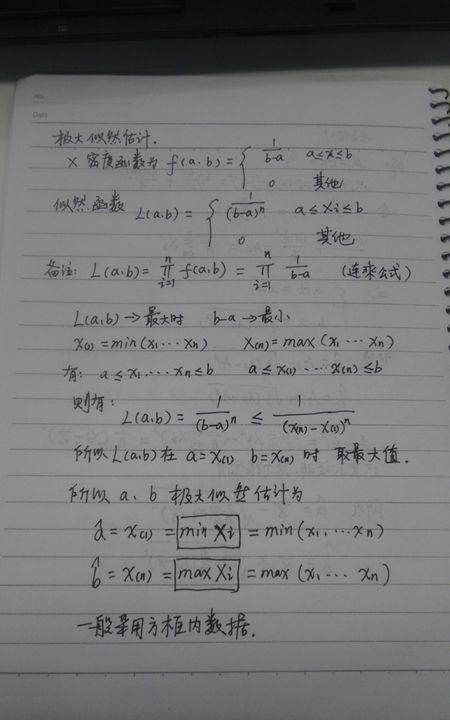 No.
Date
极大似然估计.
X 密度函数为 f(a.b) = { 1/(b-a) a≤x≤b
0 其他
似然函数 L(a.b) = { 1/(b-a)^n a≤Xi≤b
0 其他
备注: L(a.b) = ∏_{i=1}^{n} f(a.b) = ∏_{i=1}^{n} 1/(b-a) (连乘公式)
L(a.b) → 最大时 b-a → 最小
X(1) = min(x1 ⋯ xn) X(n) = max(x1 ⋯ xn)
有: a≤x1. ⋯ xn≤b a≤x(1) ⋯ x(n)≤b
则有:
L(a.b) = 1/(b-a)^n ≤ 1/(x(n)-x(1))^n
所以 L(a.b) 在 a=x(1) b=x(n) 时 取最大值.
所以 a. b 极大似然估计为
â = x(1) = min Xi = min(x1, ⋯ xn)
b̂ = x(n) = max Xi = max(x1 ⋯ xn)
一般采用方框内数据.